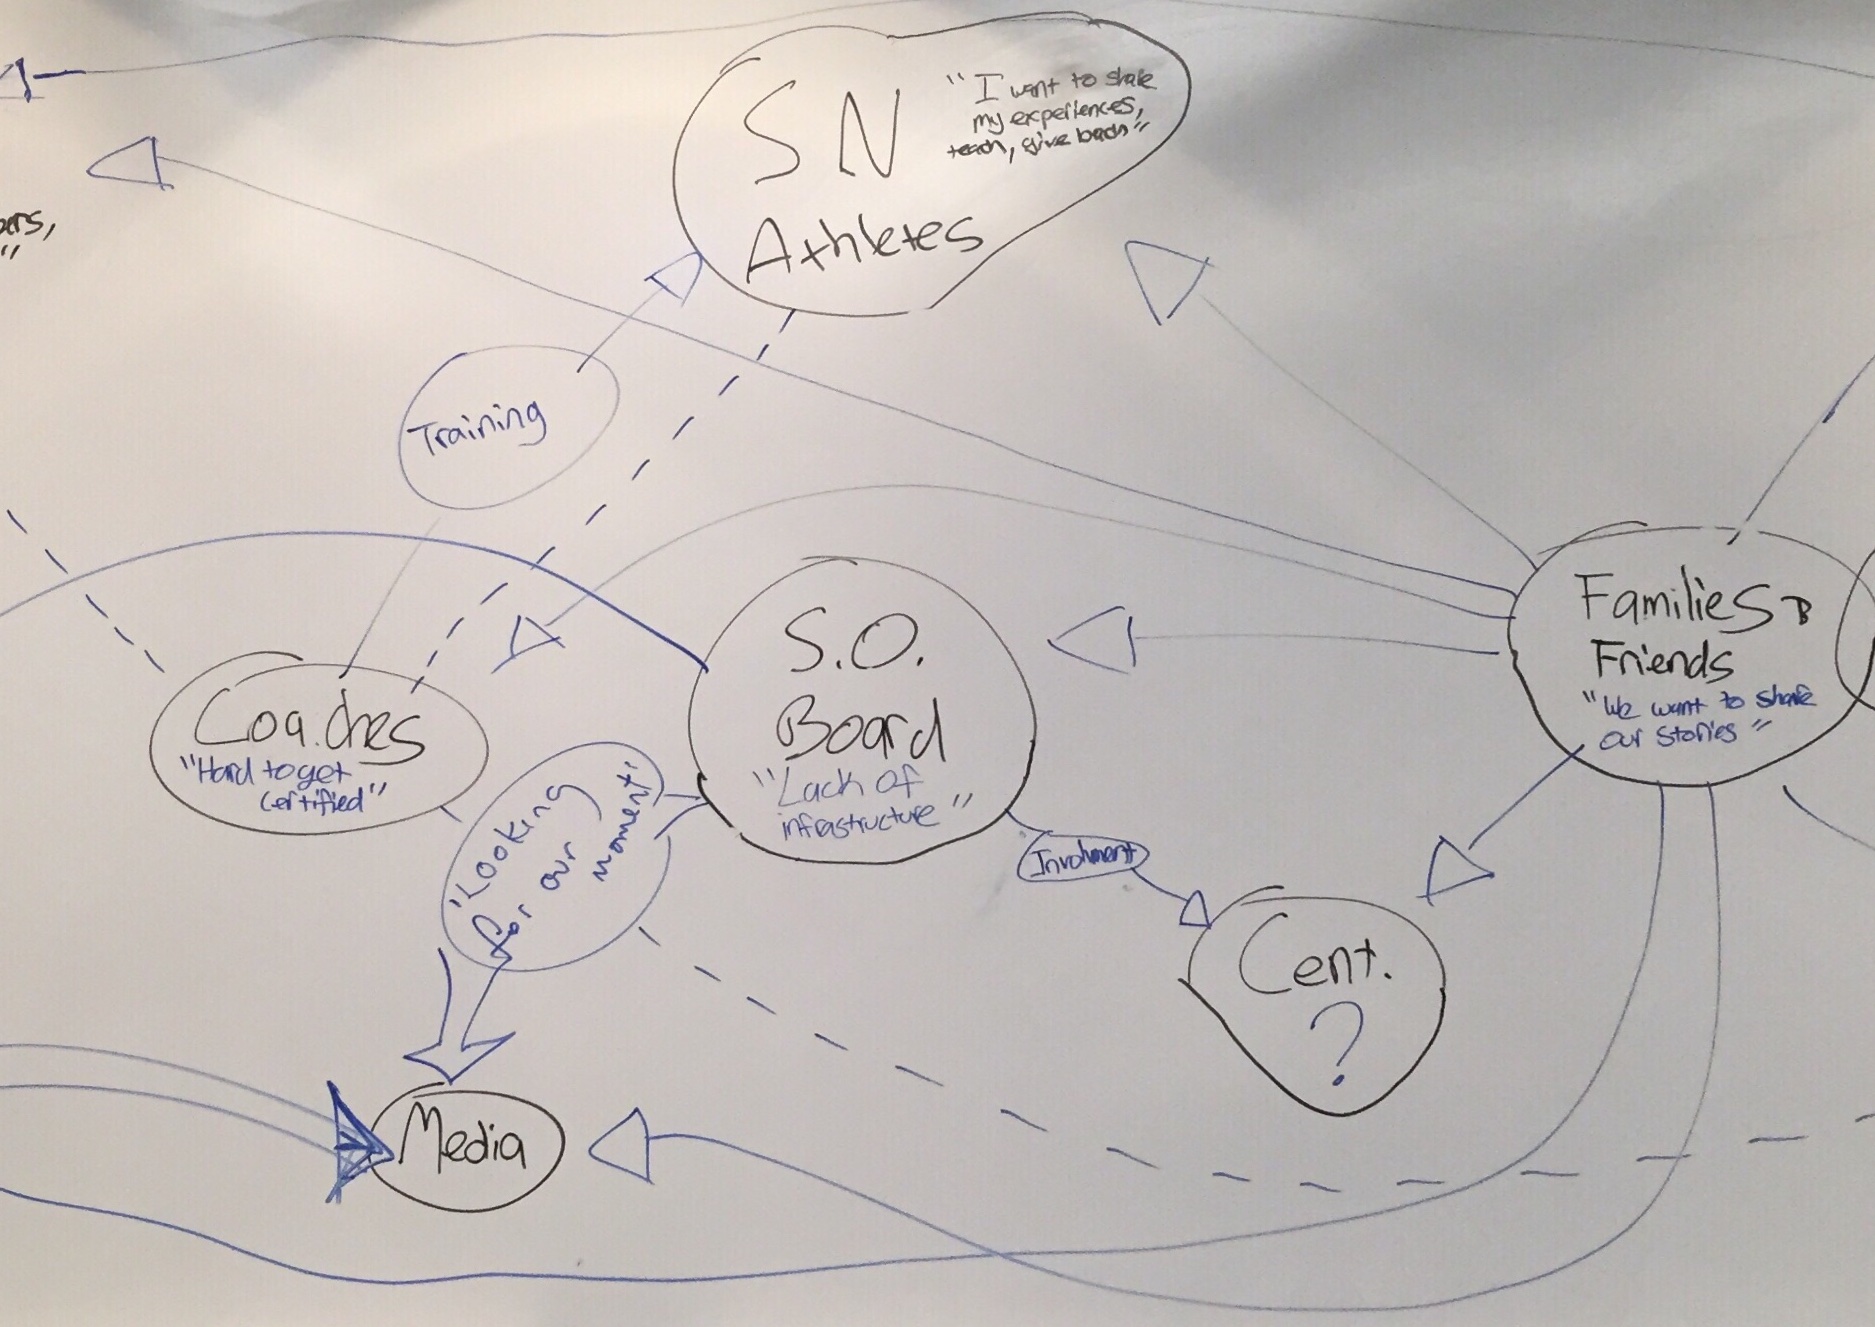 S N
Athletes
"I want to share
my experiences,
teach, give back"
Training
Coaches
"Hard to get
certified"
S.O.
Board
"Lack of
infrastructure"
Families &
Friends
"We want to share
our stories"
'Looking
for our
moment'
Involvment
Cent.
?
Media